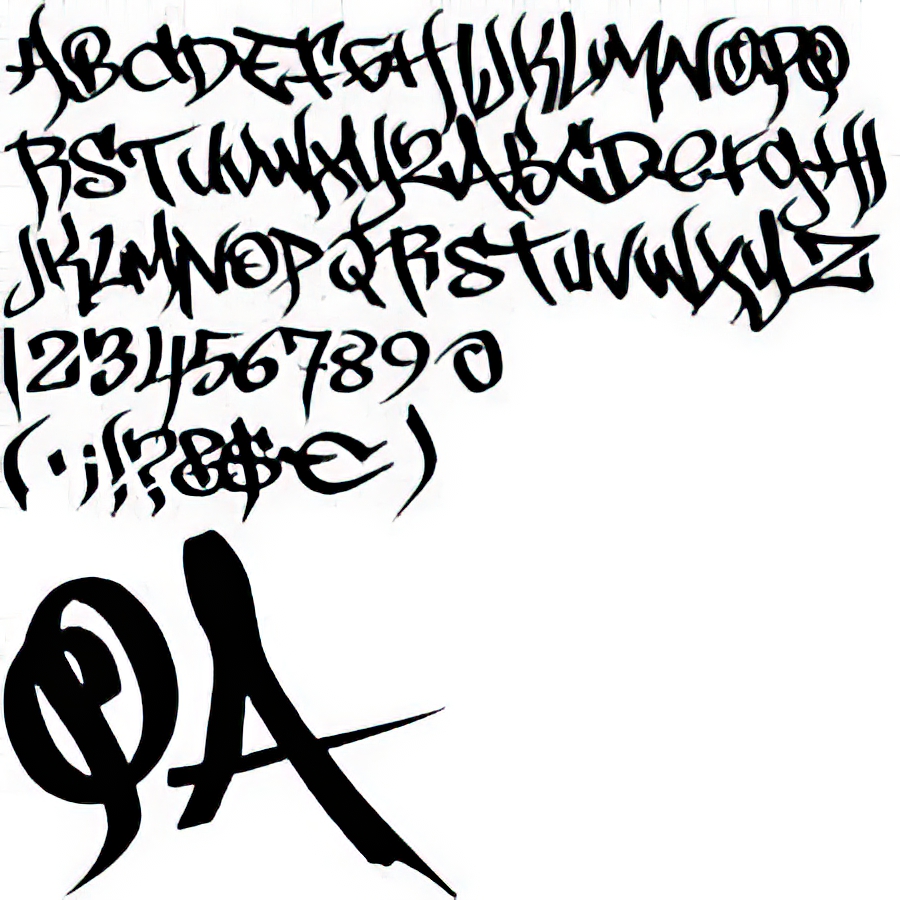 ABCDEFGHIJKLMNOPQ
RSTUVWXYZABCDEFGHI
JKLMNOPQRSTUVWXYZ
1234567890
(·;!?&$€)
QA